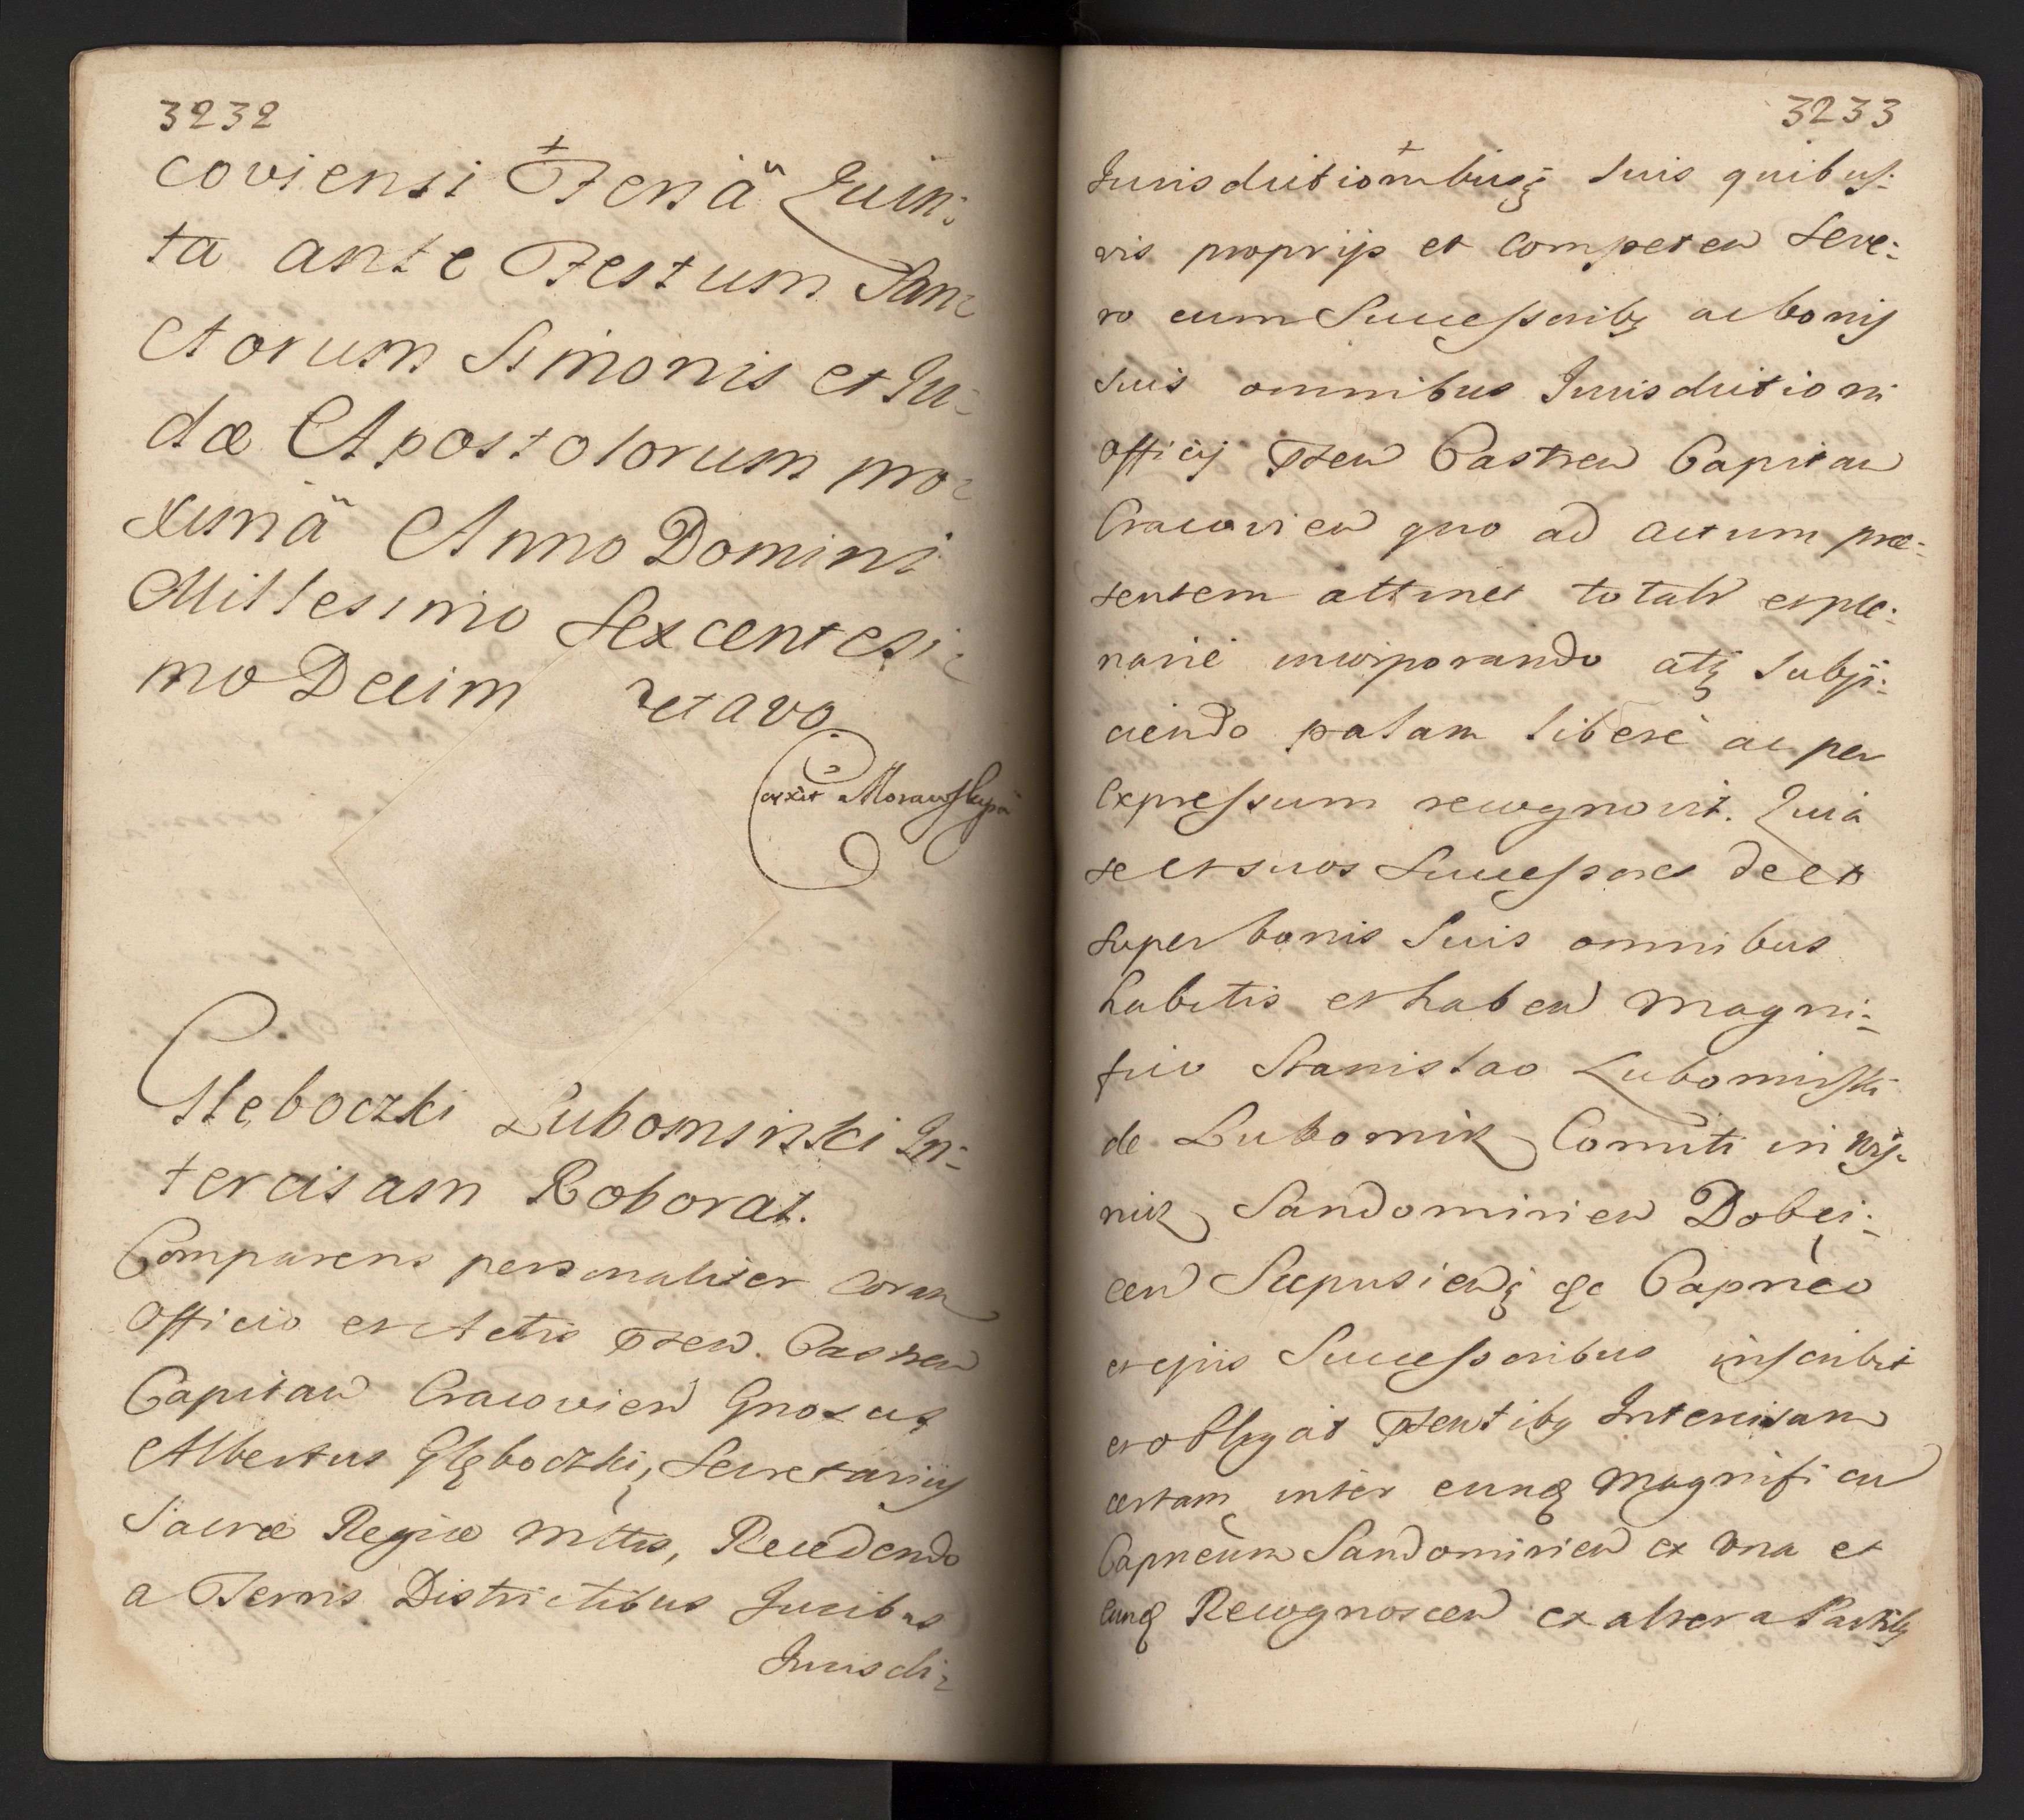 3232
coviensi Feriâ Quin:
ta ante Festum San:
ctorum Simonis et Iu:
dæ Apostolorum pro:
ximâ Anno Domini
Millesimo Sexcentesi:
mo Decim ctavo
Correxit Morawsky
Głęboczki Lubomirski In:
tercisam Roborat.
Comparens personaliter coram
Officio et Actis pnten. Castren
Capitan Cracovien Gnosus
Albertus Głęboczki, Secretarius
Sacræ Regiæ Mttis, Recedendo
a Terris Districtibus Iuribus
Iurisdi:
3233
Iurisdictionibusq suis quibus:
vis proprijs et competen seve:
ro cum Successoribq ac bonis
suis omnibus Iurisdictioni
Officij pnten Castren Capitan
Cracovien quo ad actum præ:
sentem attinet totalr et ple:
nariè incorporando atq subij:
ciendo palam liberè ac per
expressum recognovit. Quia
se et suos Successores de et
super bonis suis omnibus
habitis et haben Magni:
fico Stanislao Lubomirski
de Lubomirz Comiti in Wiś:
nicz Sandomirien Dobci:
cen Scepusienq &c Capneo
et ejus Successoribus inscribit
et obligat pntentibq Intercisam
certam inter eundq Magnificu
Capneum Sandomirien ex una et
eundq Recognoscen ex altera Partibq